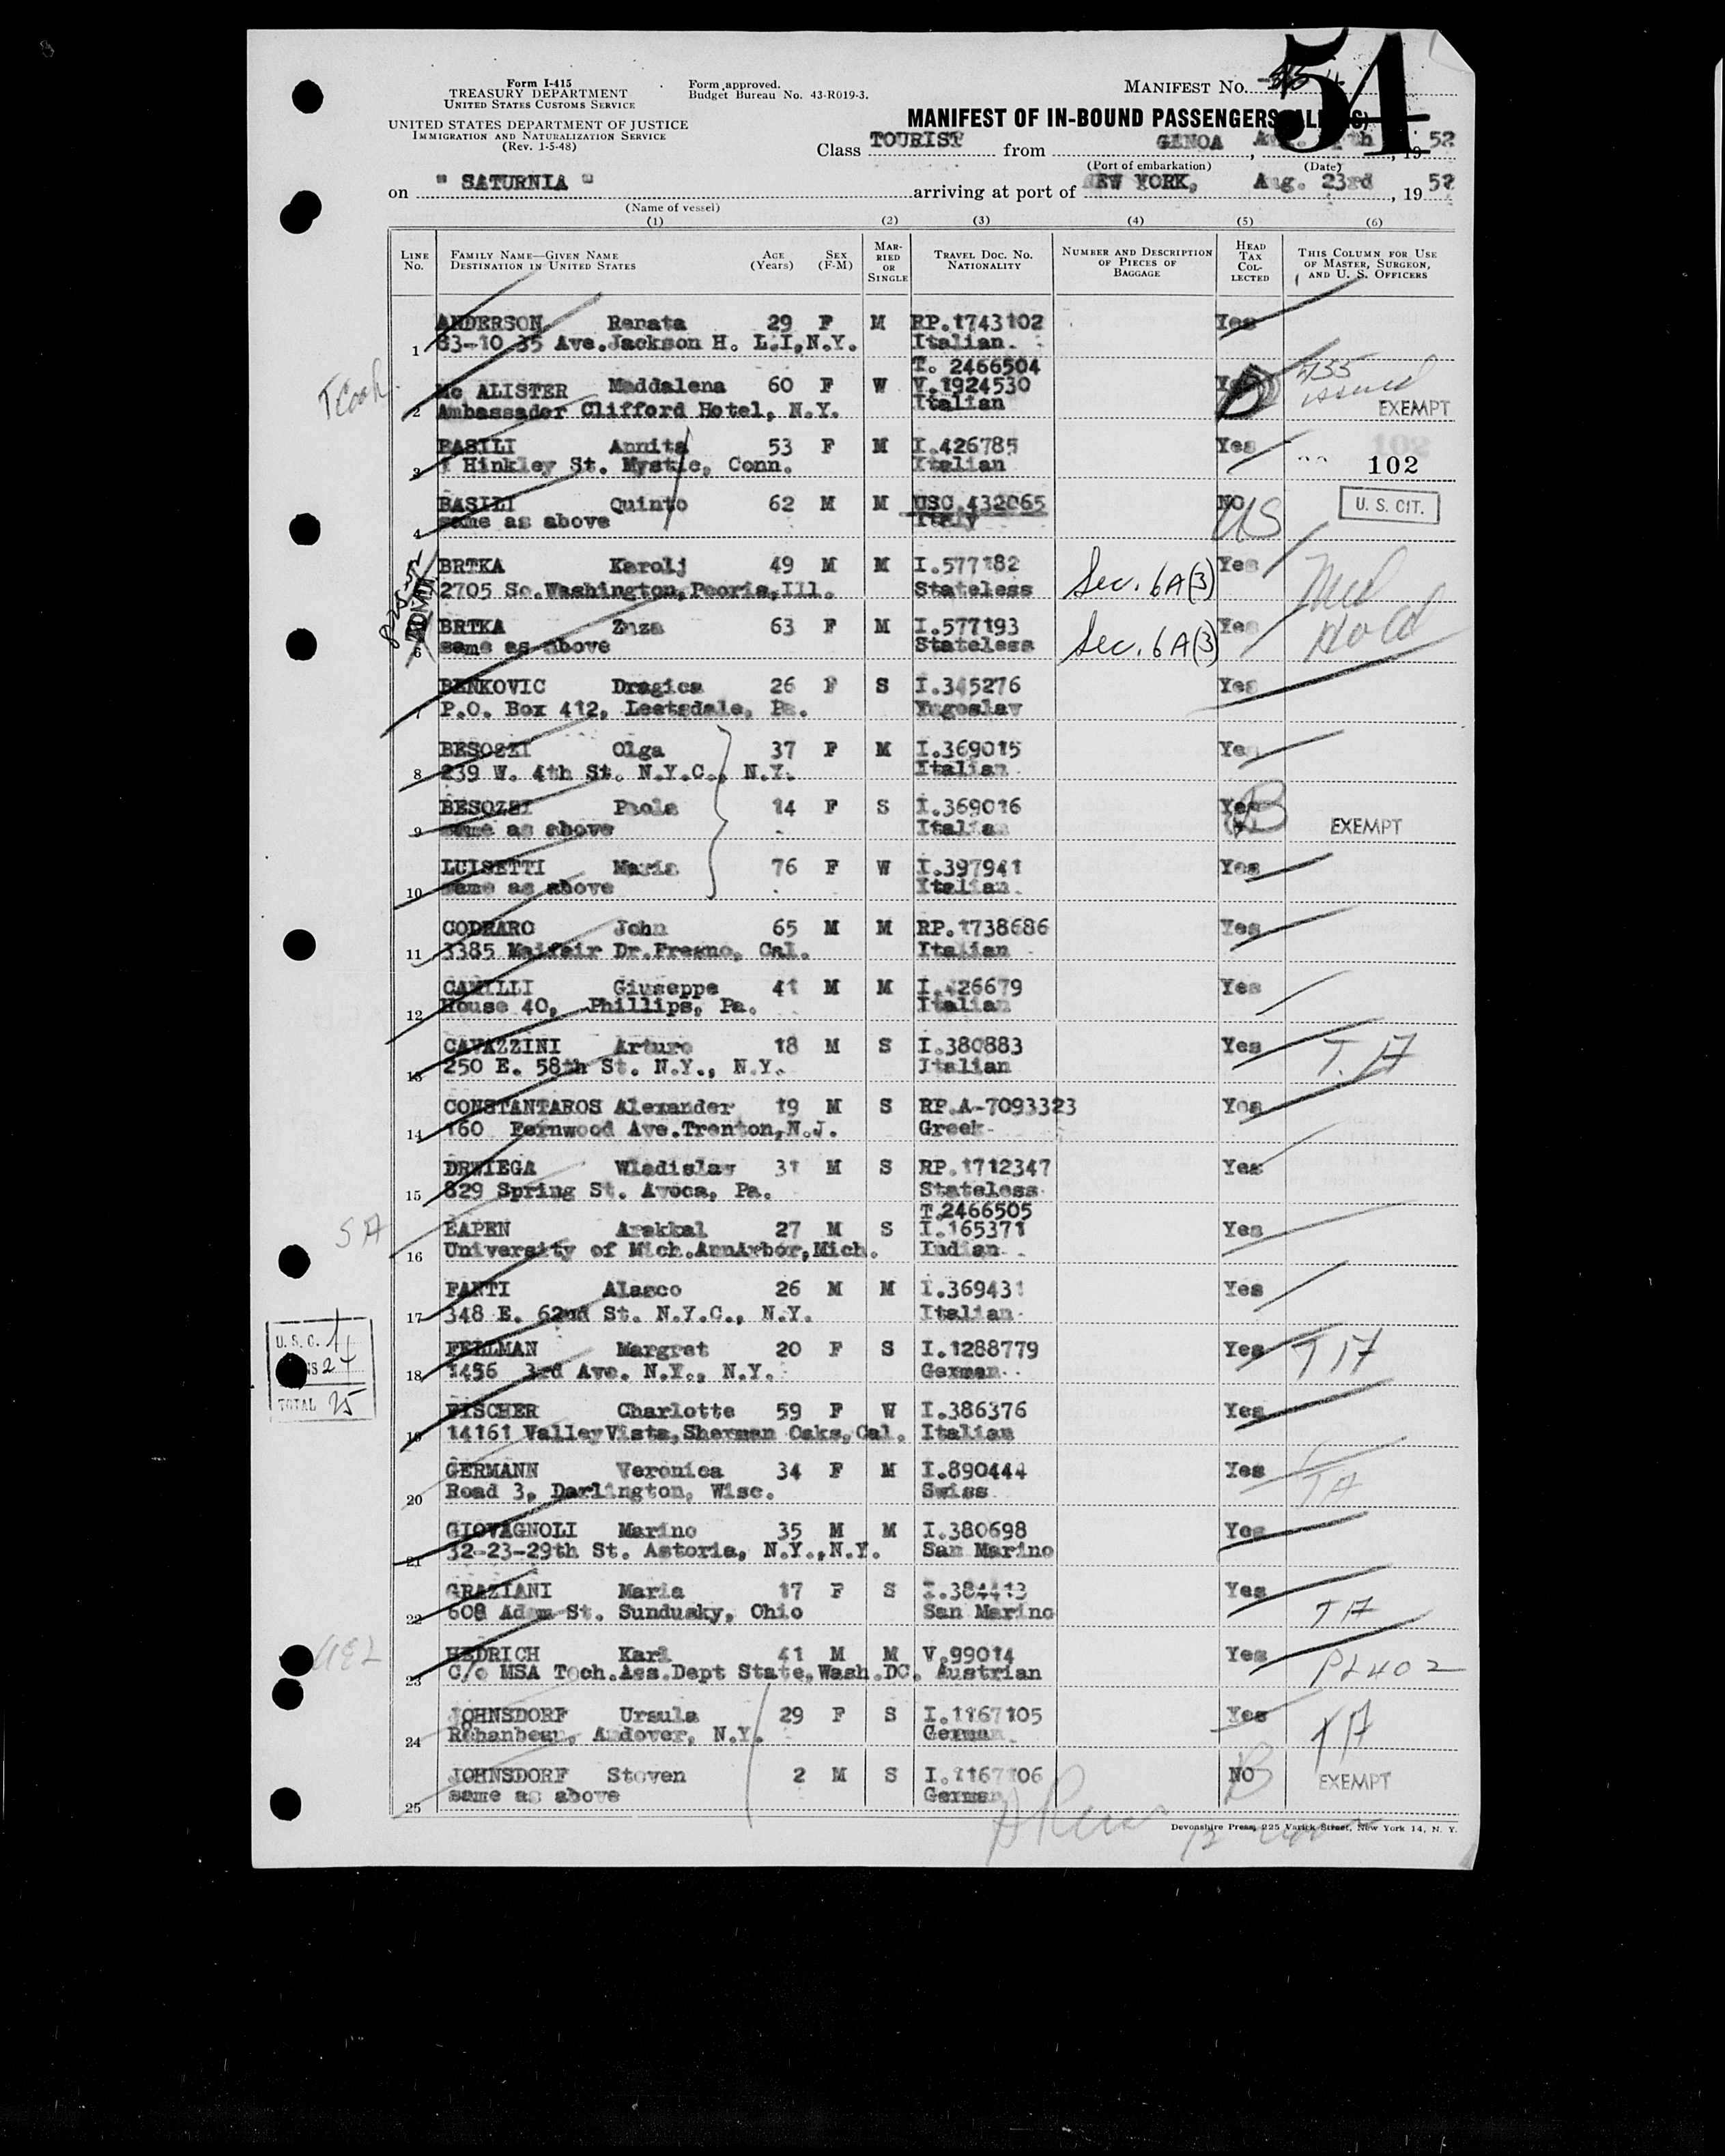 54
Form I-415
TREASURY DEPARTMENT
UNITED STATES CUSTOMS SERVICE
UNITED STATES DEPARTMENT OF JUSTICE
IMMIGRATION AND NATURALIZATION SERVICE
(Rev. 1-5-48)
Form approved.
Budget Bureau No. 43-R019-3.
MANIFEST No.
MANIFEST OF IN-BOUND PASSENGERS
Class TOURIST from GENOA, 1952
(Port of embarkation) (Date)
on " SATURNIA " arriving at port of NEW YORK, Aug. 23rd, 1952
(Name of vessel)
(1) (2) (3) (4) (5) (6)
LINE No. FAMILY NAME—GIVEN NAME DESTINATION IN UNITED STATES AGE (Years) SEX (F-M) MARRIED OR SINGLE TRAVEL DOC. NO. NATIONALITY NUMBER AND DESCRIPTION OF PIECES OF BAGGAGE HEAD TAX COLLECTED THIS COLUMN FOR USE OF MASTER, SURGEON, AND U. S. OFFICERS
ANDERSON Renata 29 F M RP.1743102 Yes
1 83-10 35 Ave.Jackson H. L.I,N.Y. Italian.
T. 2466504
Mc ALISTER Maddalena 60 F W V.1924530 issued
2 Ambassador Clifford Hotel, N.Y. Italian EXEMPT
BASILI Annita 53 F M I.426785 Yes
3 Hinkley St. Mystic, Conn. Italian 102
BASILI Quinto 62 M M USC.432065 NO US U. S. CIT.
4 same as above Italy
BRTKA Karolj 49 M M I.577182 Sec. 6A(3) Yes Med
2705 So.Washington,Peoria,Ill. Stateless
BRTKA 63 F M I.577193 Sec. 6A(3) Yes Hold
6 same as above Stateless
BENKOVIC Dragica 26 F S I.345276 Yes
7 P.O. Box 412, Leetsdale, Pa. Yugoslav
BESOZZI Olga 37 F M I.369015 Yes
8 239 W. 4th St. N.Y.C., N.Y. Italian
BESOZZI Paola 14 F S I.369016 Yes B
9 same as above Italian EXEMPT
LUISETTI Maria 76 F W I.397941 Yes
10 same as above Italian
CODRARO John 65 M M RP.1738686 Yes
11 3385 Maifair Dr.Fresno, Cal. Italian
CAMILLI Giuseppe 41 M M I.426679 Yes
12 House 40, Phillips, Pa. Italian
CAVAZZINI Arturo 18 M S I.380883 Yes T.A
13 250 E. 58th St. N.Y., N.Y. Italian
CONSTANTAROS Alexander 19 M S RP.A-7093323 Yes
14 160 Fernwood Ave.Trenton,N.J. Greek
DRWIEGA Wladislav 31 M S RP.1712347 Yes
15 829 Spring St. Avoca, Pa. Stateless
T.2466505
SA EAPEN Arakkal 27 M S I.165371 Yes
16 University of Mich.AnnArbor,Mich. Indian
FANTI Alasco 26 M M I.369431 Yes
17 348 E. 62nd St. N.Y.C., N.Y. Italian
U.S.C. 1
FELLMAN Margret 20 F S I.1288779 Yes TA
18 1456 3rd Ave. N.Y., N.Y. German
24
TOTAL 25
FISCHER Charlotte 59 F W I.386376 Yes
19 14161 ValleyVista,Sherman Oaks,Cal. Italian
GERMANN Veronica 34 F M I.890444 Yes TA
20 Road 3, Darlington, Wisc. Swiss
GIOVAGNOLI Marino 35 M M I.380698 Yes
21 32-23-29th St. Astoria, N.Y.,N.Y. San Marino
GRAZIANI Maria 17 F S I.384413 Yes TA
22 608 Adam St. Sundusky, Ohio San Marino
HEDRICH Karl 41 M M V.99014 Yes PL402
23 C/o MSA Tech.Ass.Dept State,Wash.DC. Austrian
JOHNSDORF Ursula 29 F S I.1167105 Yes TA
24 Rohanbeau, Andover, N.Y. German
JOHNSDORF Steven 2 M S I.1167106 NO B EXEMPT
25 same as above German
Devonshire Press, 225 Varick Street, New York 14, N. Y.